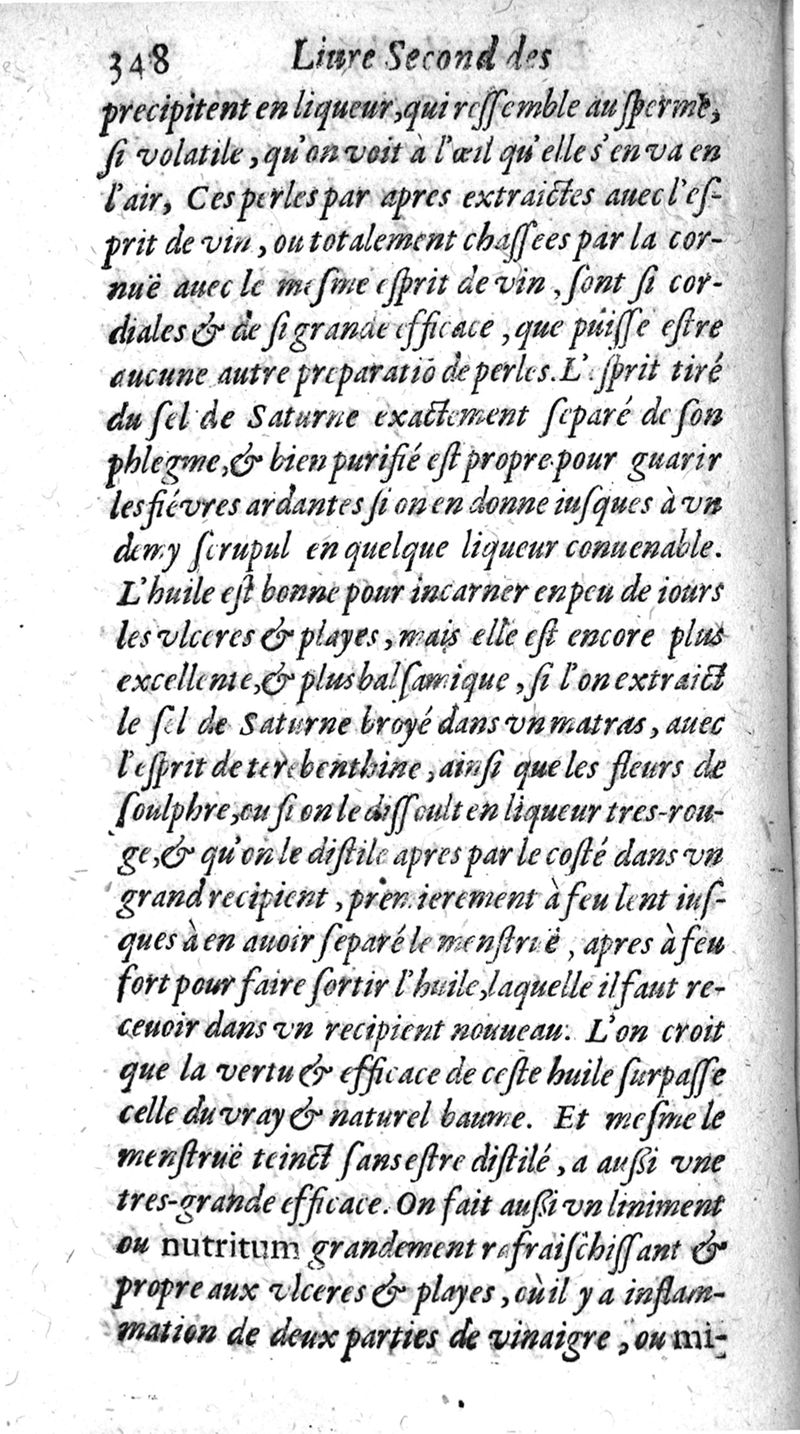 348 Liure Second des
precipitent en liqueur, qui ressemble au sperme,
si volatile, qu'on voit à l'œil qu'elle s'en va en
l'air, Ces perles par apres extraictes auec l'es-
prit de vin, ou totalement chassees par la cor-
nuë auec le mesme esprit de vin, sont si cor-
diales & de si grande efficace, que puisse estre
aucune autre preparatiō de perles. L'esprit tiré
du sel de Saturne exactement separé de son
phlegme, & bien purifié est propre pour guarir
les fiévres ardantes si on en donne iusques à vn
demy scrupul en quelque liqueur conuenable.
L'huile est bonne pour incarner en peu de iours
les vlceres & playes, mais elle est encore plus
excellente, & plus balsamique, si l'on extraict
le sel de Saturne broyé dans vn matras, auec
l'esprit de terebenthine, ainsi que les fleurs de
soulphre, ou si on le dissoult en liqueur tres-rou-
ge, & qu'on le distile apres par le costé dans vn
grand recipient, premierement à feu lent ius-
ques à en auoir separé le menstruë, apres à feu
fort pour faire sortir l'huile, laquelle il faut re-
ceuoir dans vn recipient nouueau. L'on croit
que la vertu & efficace de ceste huile surpasse
celle du vray & naturel baume. Et mesme le
menstruë teinct sans estre distilé, a aussi vne
tres-grande efficace. On fait aussi vn liniment
ou nutritum grandement rafraischissant &
propre aux vlceres & playes, où il y a inflam-
mation de deux parties de vinaigre, ou mi-